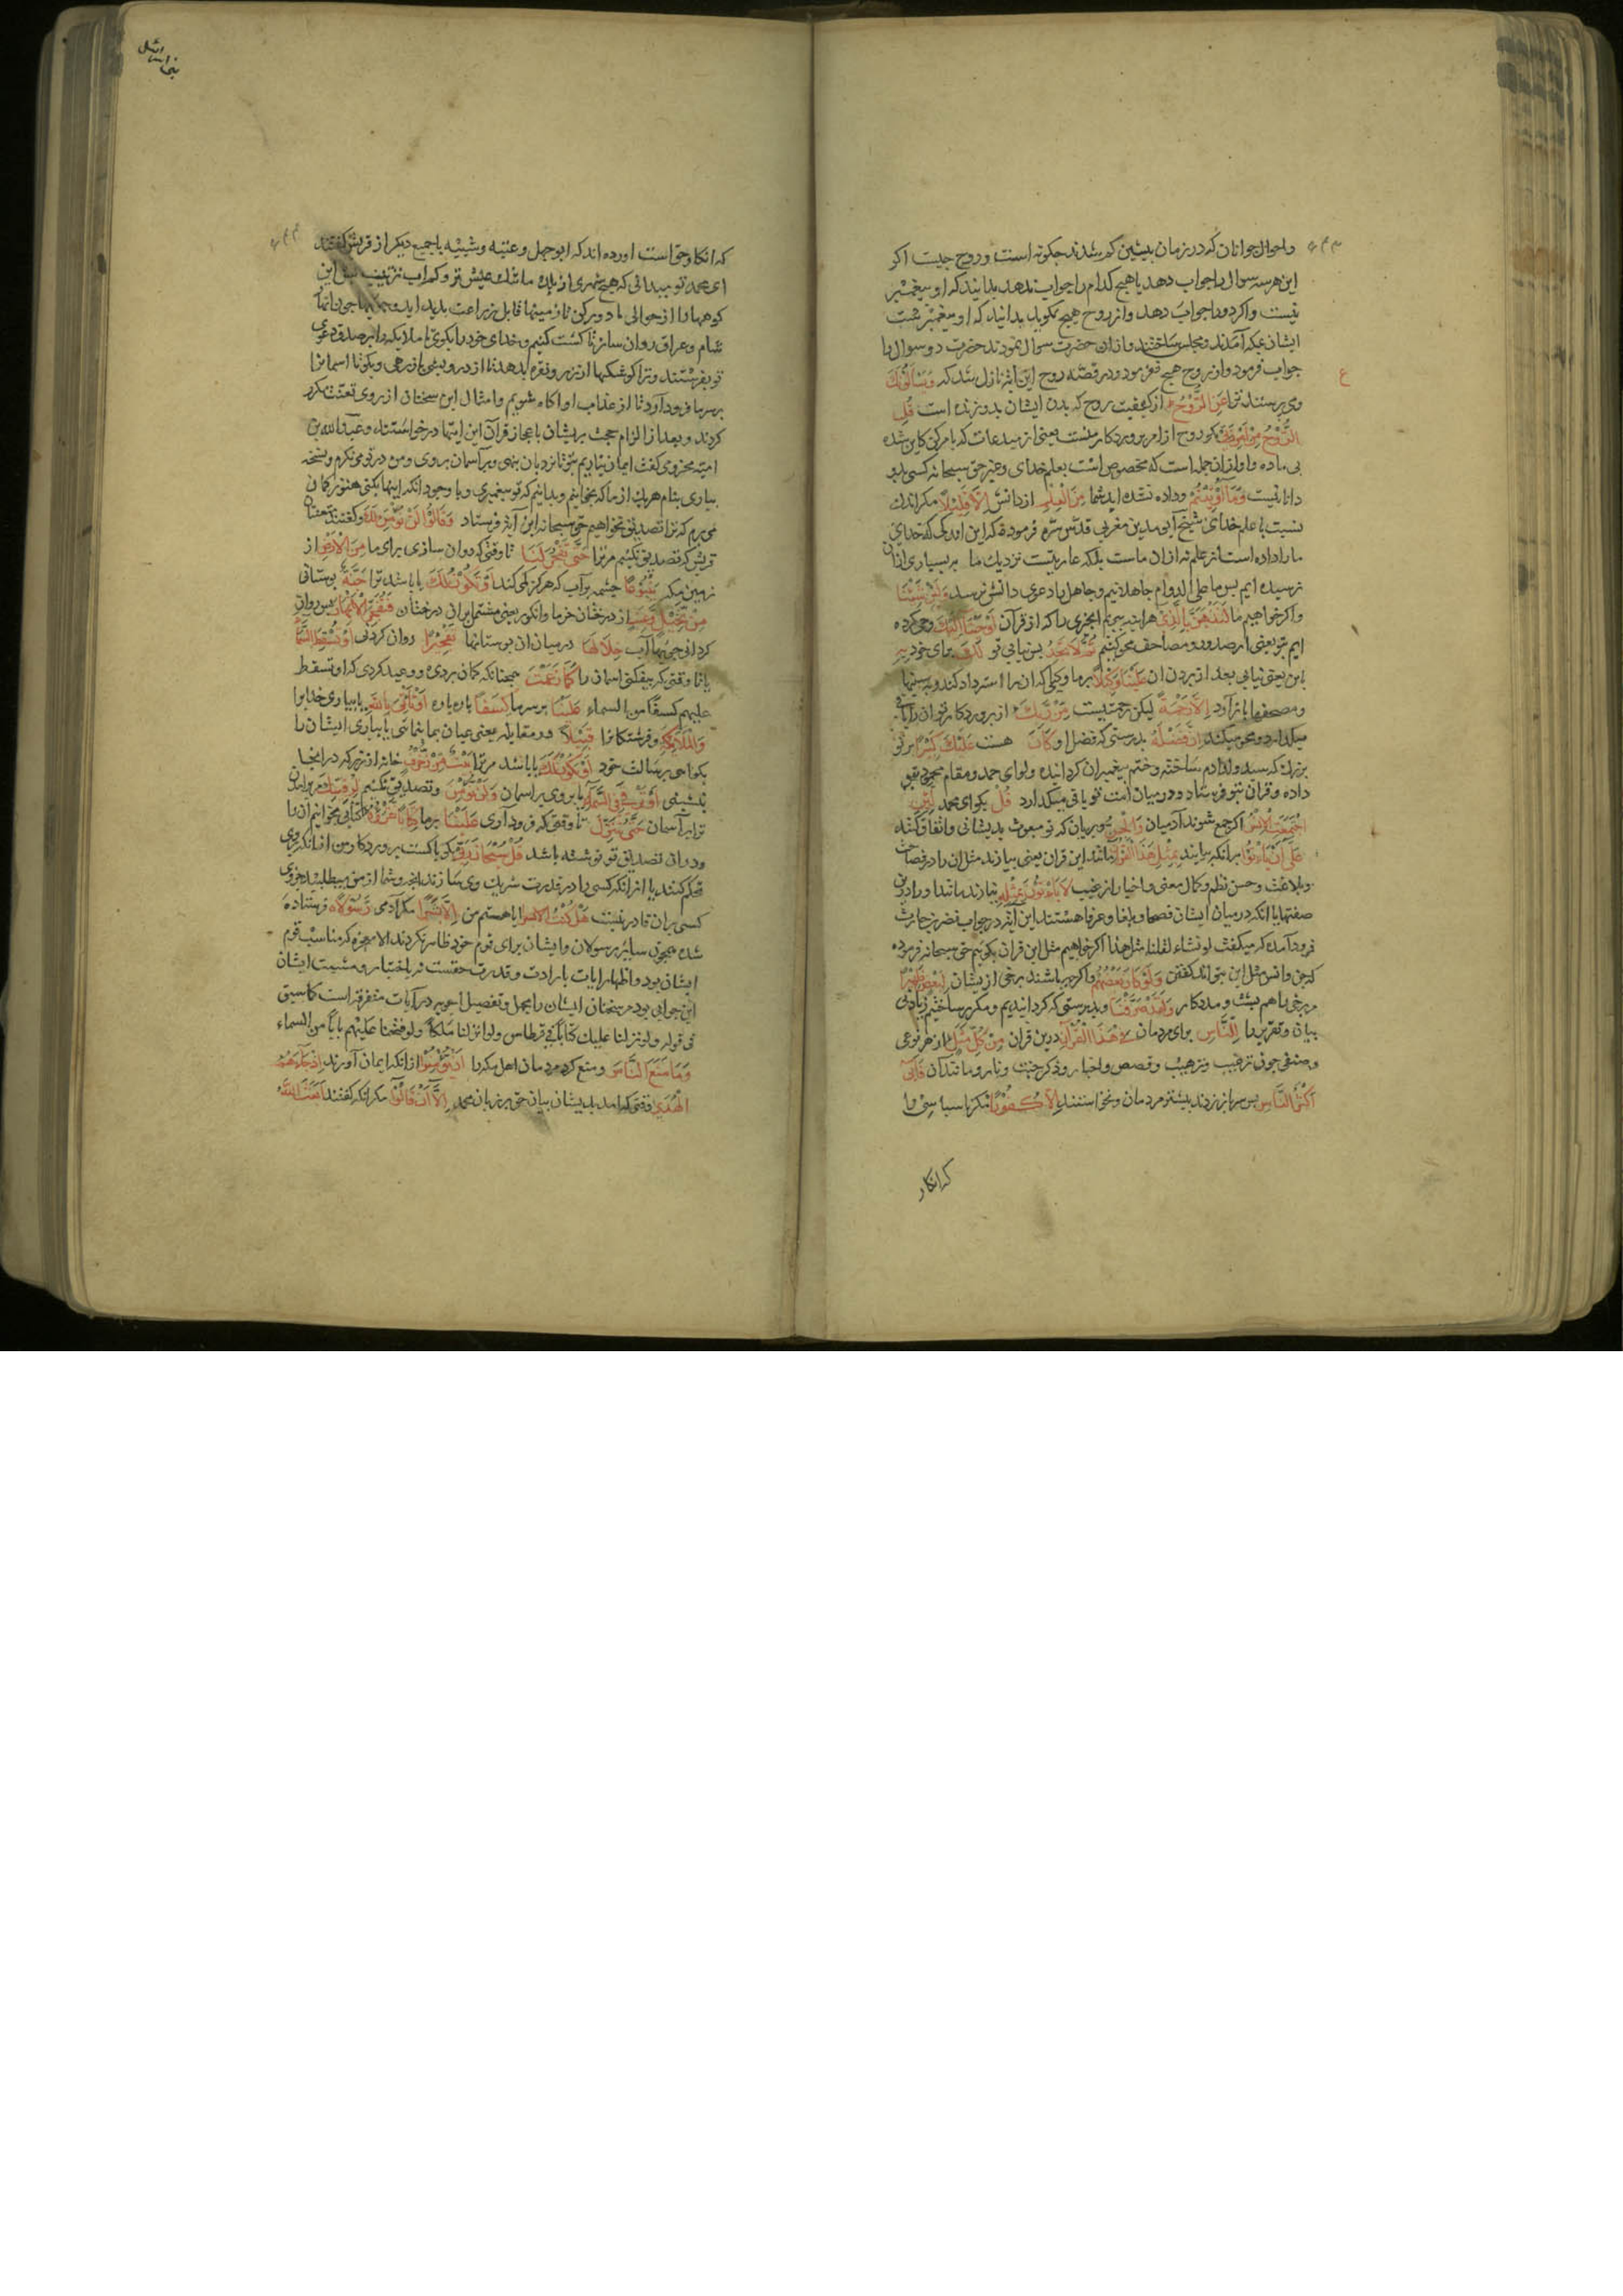 واحوال جوانان که در زمان پیشین کم شدند چکونه است و روح چیست اکر
این هرسه سوال را جواب دهد یا هیچ کدام را جواب ندهد بدانید که او پیغمبر
نیست و اکر دو را جواب دهد و از روح هیچ نکوید بدانید که او پیغمبرست
ایشان بمکه آمدند و مجلس ساختند و از ان حضرت سوال نمودند حضرت دو سوال را
جواب فرمود و از روح هیچ نفرمود و در قصّه روح این آیة نازل شد که وَیَسْأَلُونَكَ
ومی پرسند ترا عَنِ الرُّوحِ از کیفیت روح که بدن ایشان بدو زنده است قُلِ
الرُّوحُ مِنْ أَمْرِ رَبِّي بکو روح از امر پروردکار منست یعنی از مبدعات که بامر کن کاین شده
بی ماده و او از ان جمله است که مخصوص است بعلم خدای و غیر حق سبحانه کسی بدو
دانا نیست وَمَا أُوتِيتُمْ وداده نشده اید شما مِنَ الْعِلْمِ از دانش إِلَّا قَلِيلًا مکر اندك
نسبت با علم خدای شیخ أبی مدین مغربی قدّس سرّه فرموده که این اندکی که خدای
ما را داده است از علم نه از ان ماست بلکه عاریتست نزدیك ما و به بسیاری از ان
نرسیده ایم پس ما علی الدوام جاهلانیم و جاهل را دعوی دانش نرسد وَلَئِنْ شِئْنَا
و اکر خواهیم ما لَنَذْهَبَنَّ بِالَّذِي هراینه ببریم انچیزی را که از قرآن أَوْحَيْنَا إِلَيْكَ وحی کرده
ایم بتو یعنی از صدور و مصاحف محو کنیم ثُمَّ لَا تَجِدُ پس نیابی تو لَكَ برای خود بِهِ
باین یعنی نیابی بعد از بردن ان عَلَيْنَا وَكِيلًا برما وکیلی که ان را استرداد کند و بسینها
و مصحفها باز آورد إِلَّا رَحْمَةً لیکن رحمتیست مِنْ رَبِّكَ از پروردکار تو ان را باقی
میکذارد و محو نمیکند إِنَّ فَضْلَهُ بدرستی که فضل او كَانَ هست عَلَيْكَ كَبِيرًا بر تو
بزرك که سید ولد آدم ساخته و ختم پیغمبران کردانیده و لوای حمد و مقام محمود بتو
داده و قران بتو فرستاد و در میان امت تو باقی میکذارد قُلْ بکو ای محمد لَئِنِ
اجْتَمَعَتِ الْإِنْسُ اکر جمع شوند آدمیان وَالْجِنُّ و پریان که تو مبعوث بدیشانی و اتفاق کنند
عَلَى أَنْ يَأْتُوا برانکه بیایند بِمِثْلِ هَذَا الْقُرْآنِ مانند این قران یعنی بیارند مثل ان را در فصاحت
و بلاغت و حسن نظم و کمال معنی و اخبار از غیب لَا يَأْتُونَ بِمِثْلِهِ نیارند مانند او را درین
صفتها با انکه در میان ایشان فصحا و بلغا و عرفا هستند این آیة در جواب نضر بن حارث
فرود آمده که میکفت لو نشاء لقلنا مثل هذا اکر خواهیم مثل این قران بکوییم حق سبحانه فرموده
که جن و انس مثل این نتوانند کفتن وَلَوْ كَانَ بَعْضُهُمْ و اکر چه باشند برخی از یشان لِبَعْضٍ ظَهِيرًا
مر برخی را هم پشت و مددکار وَلَقَدْ صَرَّفْنَا و بدرستی که کردانیدیم و مکرر ساختیم زیادتی
بیان و تقریر را لِلنَّاسِ برای مردمان فِي هَذَا الْقُرْآنِ درین قران مِنْ كُلِّ مَثَلٍ از هر نوعی
و صنفی چون ترغیب و ترهیب و قصص و اخبار و ذکر جنت و نار و مانند آن فَأَبَى
أَكْثَرُ النَّاسِ پس سرباز زدند بیشتر مردمان و نخواستند إِلَّا كُفُورًا مکر ناسپاسی را
که انکار
که انکار حق است اورده اند که ابو جهل و عتبه و شیبه با جمعی دیکر از قریش کفتند
ای محمد تو میدانی که هیچ شهری از بلد ما تنك عیش تر و کم اب تر نیست این
کوهها را از حوالی ما دور کن تا زمینها قابل زراعت پدید اید و چشمها چون انهار
شام و عراق روان ساز تا کشت کنیم و خدای خود را بکوی تا ملایکه را بر صدق دعوی
تو بفرستند و ترا کوشکها از زر و نقره بدهد تا از درویشی باز رهی و بکو تا اسمان را
بر سر ما فرود آورد تا از عذاب او اکاه شویم و امثال این سخنان از روی تعنت مکرر
کردند و بعد از الزام حجت بریشان باعجاز قرآن این ایتها درخواستند و عبد الله بن
امیّه مخزومی کفت ایمان نیاریم بتو تا نردبان بنهی و بر آسمان بروی و من در تو می نکرم و نسخه
بیاری بنام هر یك از ما که بخوانیم و بدانیم که تو پیغمبری و با وجود انکه اینها بکنی هنوز کمان
می برم که ترا تصدیق نخواهیم حق سبحانه این آیة فرستاد وَقَالُوا لَنْ نُؤْمِنَ لَكَ و کفتند متعنتان
قریش که تصدیق نکنیم مر ترا حَتَّى تَفْجُرَ لَنَا تا وقتی که روان سازی برای ما مِنَ الْأَرْضِ از
زمین مکه يَنْبُوعًا چشمه پر آب که هرکز کم نکند أَوْ تَكُونَ لَكَ یا باشد ترا جَنَّةٌ بوستانی
مِنْ نَخِيلٍ وَعِنَبٍ از درختان خرما و انکور یعنی مشتمل بر ان درختان فَتُفَجِّرَ الْأَنْهَارَ پس روان
کردانی جویهای آب خِلَالَهَا در میان ان بوستانها تَفْجِيرًا روان کردنی أَوْ تُسْقِطَ السَّمَاءَ
یا تا وقتی که بیفکنی اسمان را كَمَا زَعَمْتَ همچنانکه کمان بردی و وعید کردی که او تسقط
علیهم کسفًا من السماء عَلَيْنَا بر سر ما كِسَفًا پاره پاره أَوْ تَأْتِيَ بِاللَّهِ یا بیاری خدا را
وَالْمَلَائِكَةِ و فرشتکان را قَبِيلًا در مقابله یعنی عیان بما بنمائی یا بیاری ایشان را
بکواهی برسالت خود أَوْ يَكُونَ لَكَ یا باشد مر ترا بَيْتٌ مِنْ زُخْرُفٍ خانه از زر که در انجا
بنشینی أَوْ تَرْقَى فِي السَّمَاءِ یا بروی بر اسمان وَلَنْ نُؤْمِنَ و تصدیق نکنیم لِرُقِيِّكَ مر بر امدن
ترا بر آسمان حَتَّى تُنَزِّلَ تا وقتی که فرود آوری عَلَيْنَا بر ما كِتَابًا نَقْرَؤُهُ کتابی بخوانیم ان را
و در وی تصدیق تو نوشته باشد قُلْ سُبْحَانَ رَبِّي بکو پاکست پروردکار من از انکه بروی
تحکم کنند یا از انکه کسی را در قدرت شریك وی سازند انچه شما از من میطلبید جز وی
کسی بران قادر نیست هَلْ كُنْتُ ایا هستم من إِلَّا بَشَرًا مکر آدمی رَسُولًا فرستاده
شده همچون سایر رسولان و ایشان برای قوم خود ظاهر نکردند الا معجزه که مناسب قوم
ایشان بود و اظهار ایات بارادت و قدرت حقست نه باختیار و مشیت ایشان
این جوابی بود مر سخنان ایشان را مجمل و تفصیل اجوبه در آیات متفرقه است کما سبق
فی قوله ولو نزلنا علیك کتاباً فی قرطاس ولو انزلنا ملکاً ولو فتحنا علیهم باباً من السماء
وَمَا مَنَعَ النَّاسَ و منع نکرد مردمان اهل مکه را أَنْ يُؤْمِنُوا از انکه ایمان آورند إِذْ جَاءَهُمُ
الْهُدَى وقتی که امد بدیشان بیان حق بر زبان محمد إِلَّا أَنْ قَالُوا مکر انکه کفتند أَبَعَثَ اللَّهُ